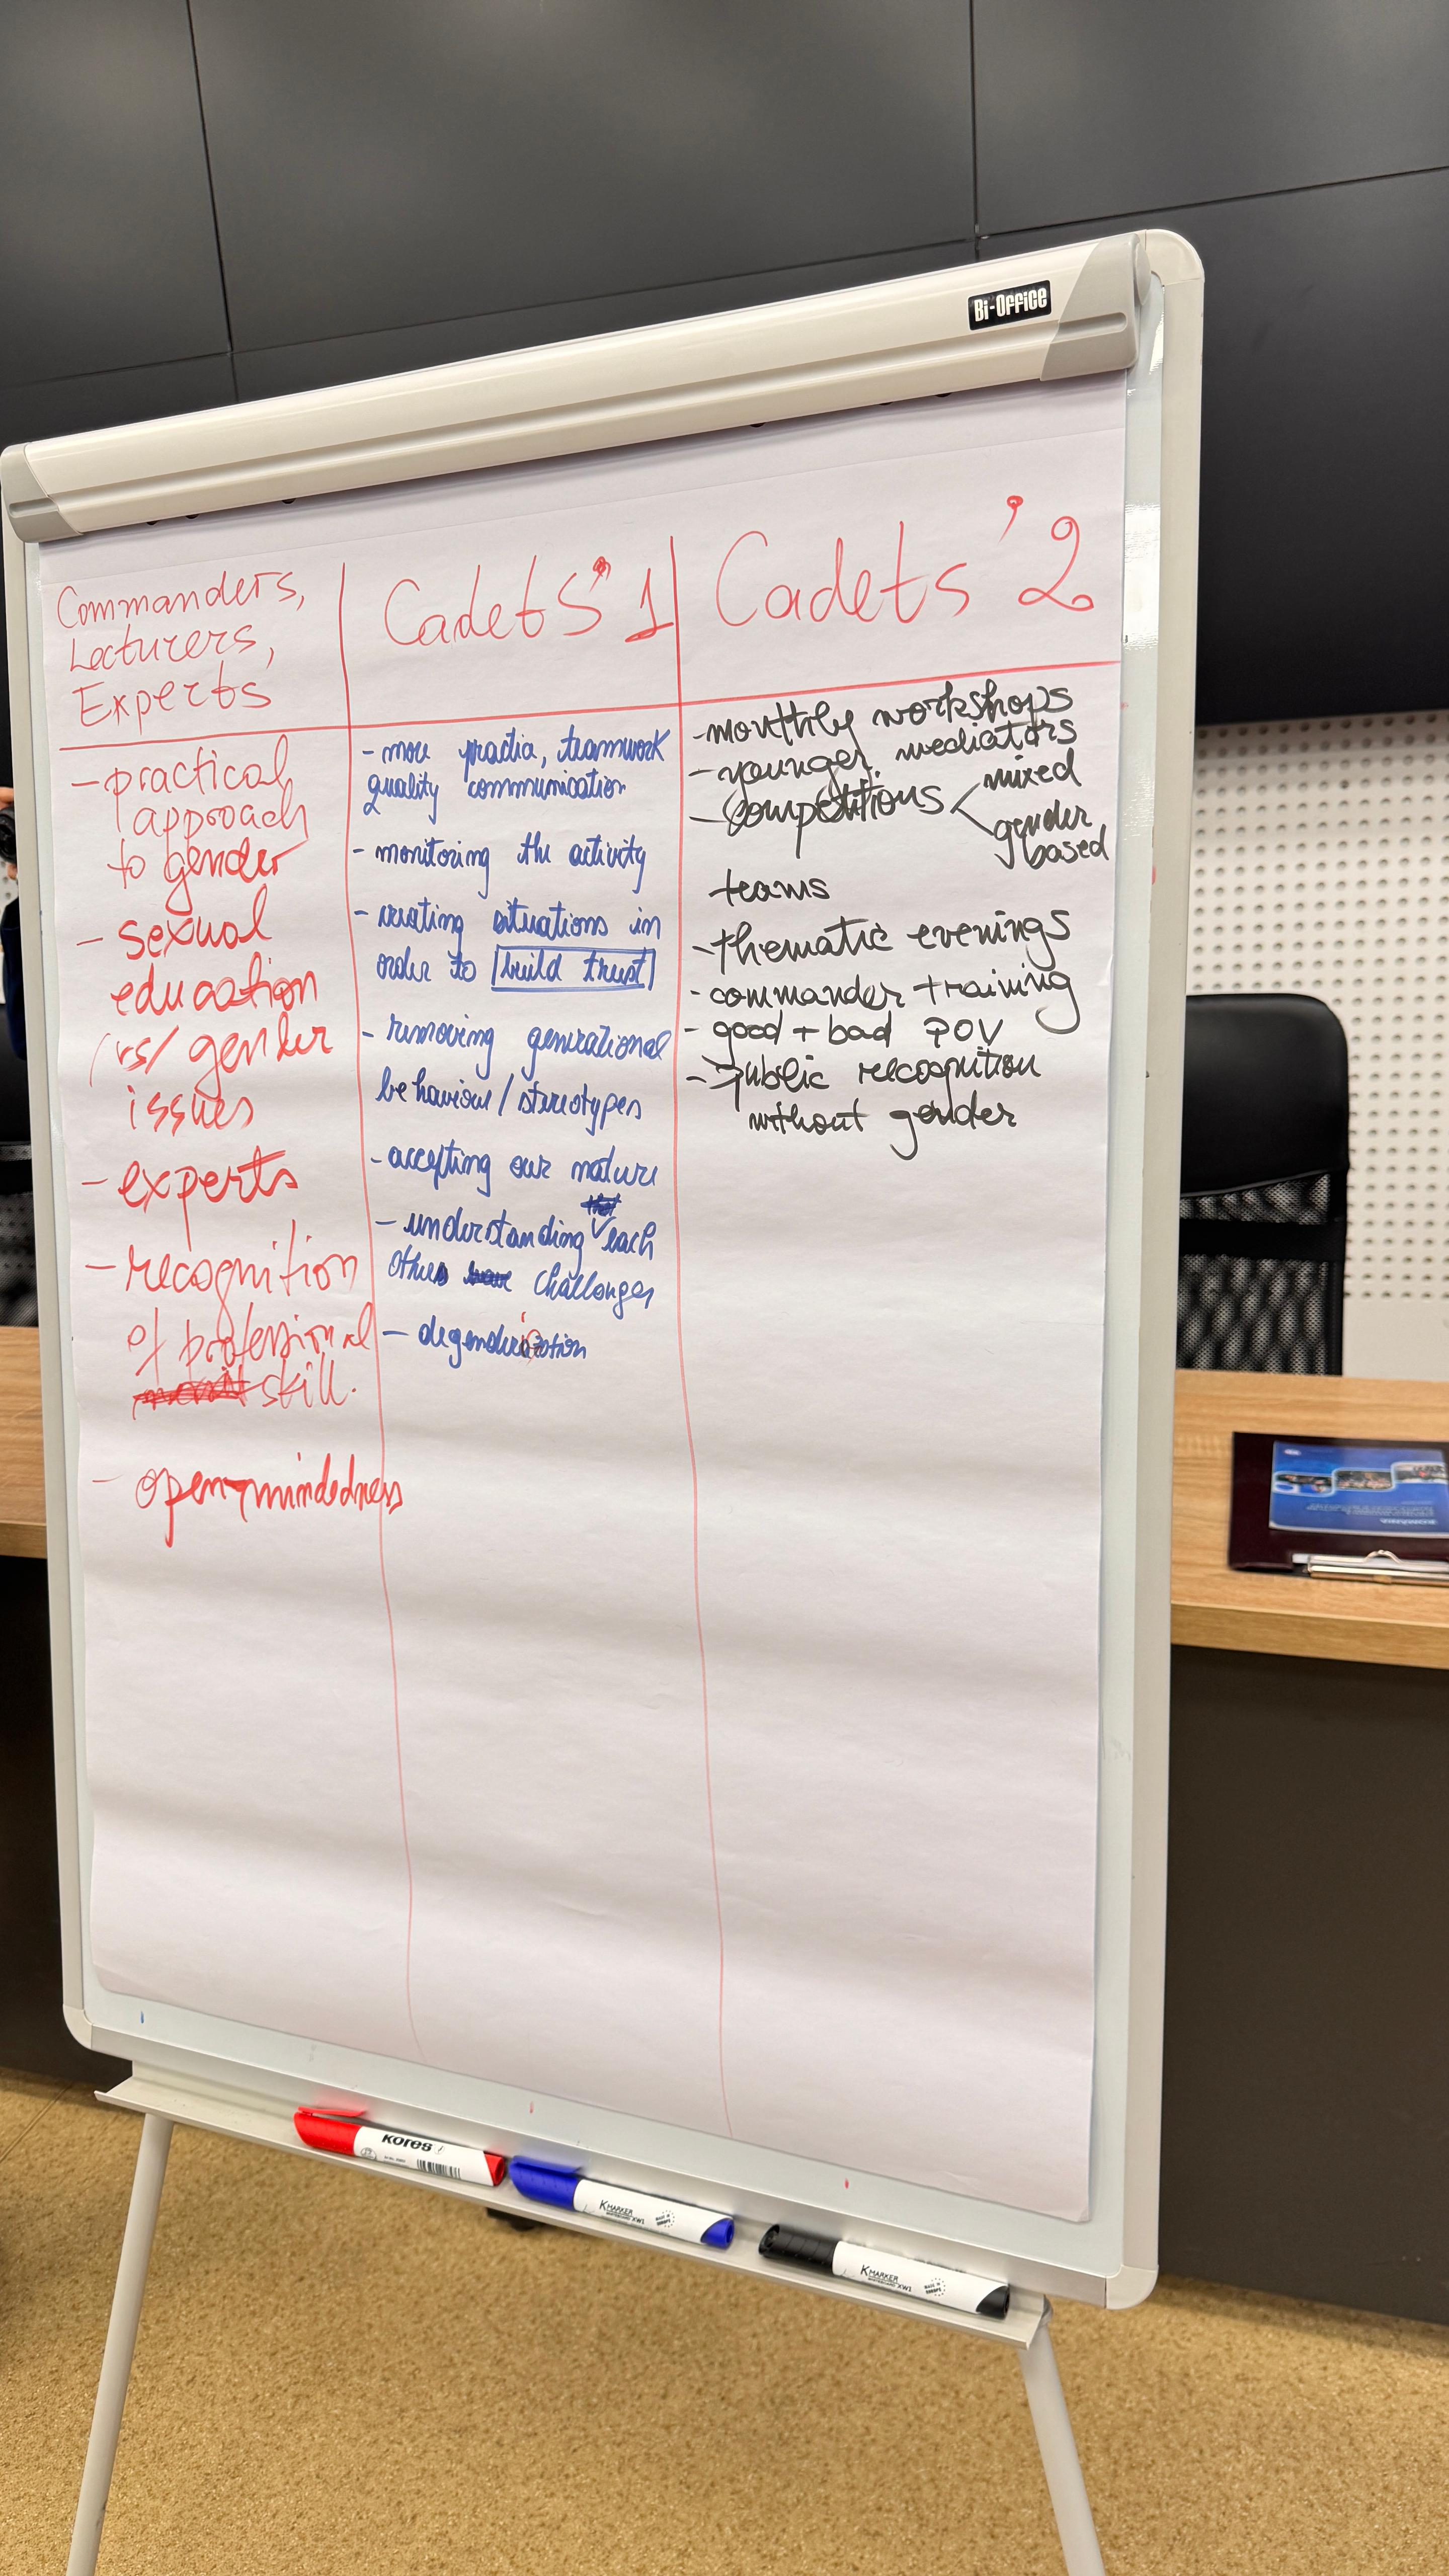 Bi-Office
Commanders,
Lecturers,
Experts
- practical
approach
to gender
- sexual
education
/vs/ gender
issues
- experts
- recognition
of professional
skill.
- open-mindedness
Cadets' 1
- more practice, teamwork
quality communication
- monitoring the activity
- creating situations in
order to build trust
- removing generational
behaviour/stereotypes
- accepting our nature
- understanding each
others challenges
- degenderization
Cadets' 2
- monthly workshops
- younger mediators
- competitions < mixed
gender
based
teams
- thematic evenings
- commander training
- good + bad POV
- public recognition
without gender
kores
K MARKER
WHITEBOARD XW1
MADE IN
EUROPE
K MARKER
WHITEBOARD XW1
MADE IN
EUROPE